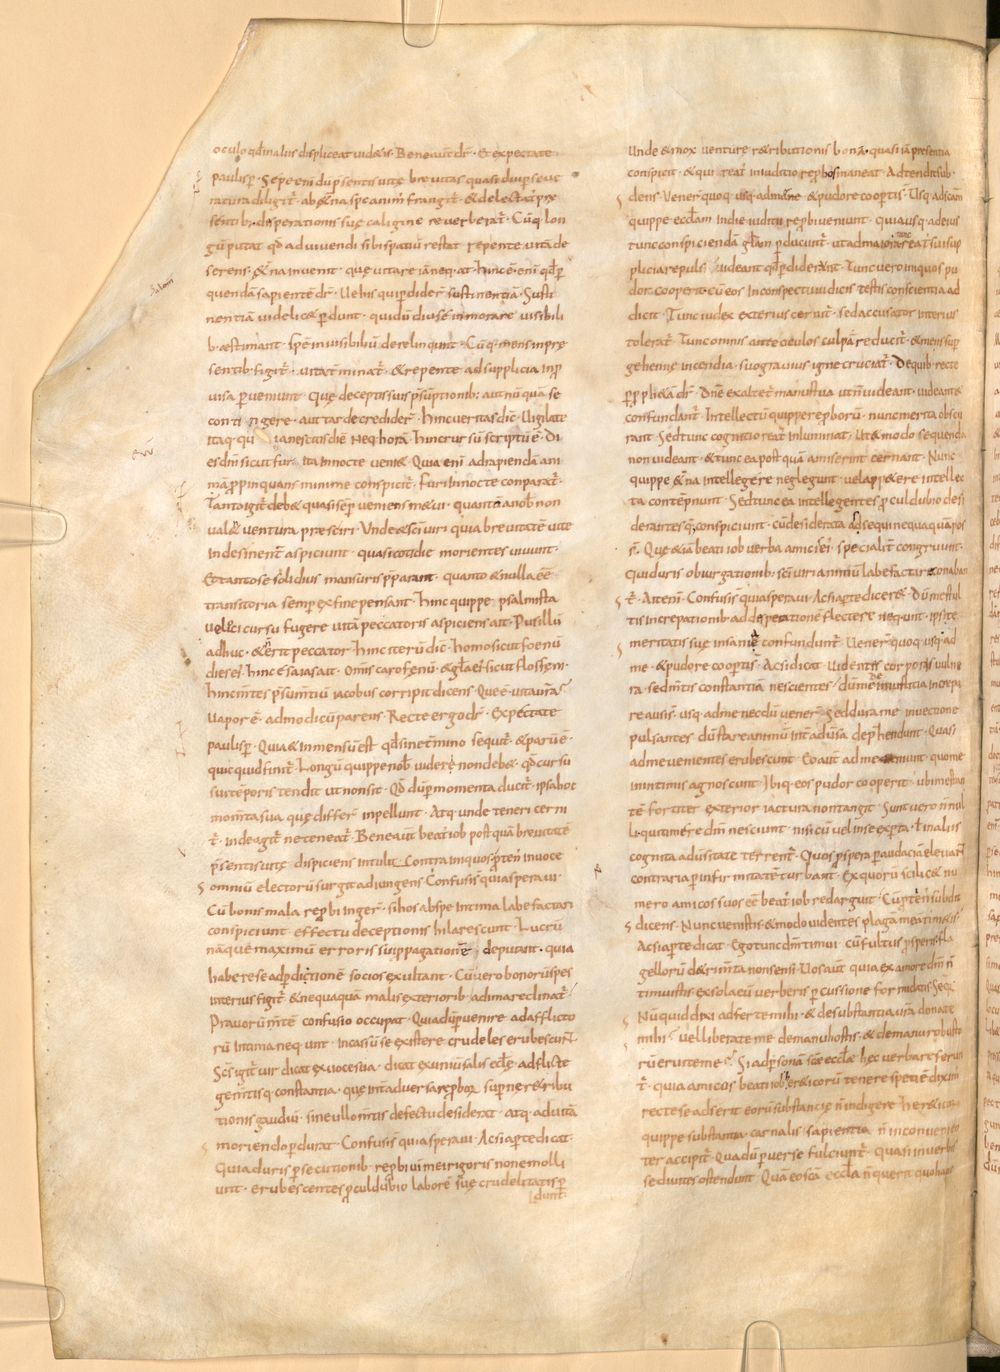 oculo qđ maliis displiceat uidetis · Bene aut̄ dr̄ · Et expectate
paulisp̄ · Sepe enī dū p̄sentis uitę breuitas quasi diu p̄seue
ratura diligit̄ · ab ęt̄na spe animꝰ frangit̄ · & delectatꝰ pre
sentib; desperationis suę caligine reuerberat̄ · Cūq; lon
gū putat qđ ad uiuendi sibi spatiū restat repente uitā de
serens · ęt̄na inuenit · quę uitare iā neq;at · hinc ē enī qđ p̄
quendā sapientē dr̄ · Ue his qui p̄dider̄ sustinentiā · Susti
nentiā uidelic& p̄dunt · qui dū diu se immorare uisibili
b; aestimant · spē inuisibiliū derelinqunt · Cūq; mens in pre
sentib; figit̄ · uita t̄minat̄ · & repente ad supplicia inp̄
uisa p̄ueniunt · Quę decepti suis p̄sūptionib; aut nūquā se
contingere · aut tarde credider̄ · hinc ueritas dic̄ · Uigilate
itaq; qui nescitis diē neq; horā · hinc rursū scriptū ē · Di
es dn̄i sicut fur ita in nocte ueni& · Quia enī ad rapiendā ani
mā p̄propinquans minime conspicit̄ · furi in nocte conparat̄ ·
Tanto igit̄ deb& quasi sēp ueniens m&ui · quanto a nob̄ non
ual& uentura praesciri · Unde & sc̄i uiri quia breuitatē uitę
indesinent̄ aspiciunt · quasi cotidie morientes uiuunt ·
Et tanto se solidius mansuris p̄parant · quanto & nulla eē
transitoria semp ex fine pensant · hinc quippe psalmista
ueloci cursu fugere uitā peccatoris aspiciens ait · Pusillū
adhuc · & n̄ erit peccator · hinc iterū dic̄ · homo sicut foenū
dies eꝰ · hinc esaias ait · Om̄is caro fenū · & gl̄a eꝰ sicut flos feni ·
hinc m̄tes p̄sumtiū iacobus corripit dicens · Que ē uita ur̄a
Uapor ē · ad modicū parens · Recte ergo dr̄ · Expectate
paulisp̄ · Quia & inmensū est qđ sine t̄mino sequit̄ · & parū ē ·
quicquid finit̄ · Longū quippe nob̄ uideri non deb& · qđ cursu
sui tēporis tendit ut non sit · Qđ dū p̄ momenta ducit̄ · ipsa hoc
mom̄ta sua que differ̄ inpellunt · Atq; unde teneri cerni
t̄ · inde agit̄ ne teneat̄ · Bene aut̄ beatꝰ iob post quā breuitatē
p̄sentis uitę dispiciens intulit · Contra iniquos p̄tenꝰ in uoce
omniū electorū surgit adiungens · Confusi s̄ quia speraui ·
Cū bonis mala rep̄bi inger̄ · si hos ab spe intima labefactari
conspiciunt · effectu deceptionis hilarescunt · Lucrū
nāque maximū erroris sui p̄pagationē deputant · quia
habere se ad p̄ditionē socios exultant · Cū uero bonorū spes
interius figit̄ · & nequaquā malis exteriorib; ad ima reclinat̄ ·
Prauorū m̄tē confusio occupat · Quia dū p̄uenire ad afflicto
rū intima neq;unt · incassū se existere crudeles erubescunt ·
Sc̄s igit̄ uir dicat ex uoce sua · dicat ex uniuersalis eccl̄ę · adflictę
gem̄tisq; constantia · quę int̄ aduersa rep̄borū · supn̄e retribu
tionis gaudiū · sine ullo m̄tis defectu desiderat · atq; ad uitā
moriendo p̄durat · Confusi s̄ quia speraui · Acsi apte dicat ·
Quia duris p̄secutionib; rep̄bi uim ei rigoris non emolli
unt · erubescentes p̄cul dubio laborē suę crudelitatis p̄
dunt ·
Unde & mox uenturę r&ributionis bona · quasi iā presentia
conspicit · & qui reatꝰ in iuditio rep̄bos maneat · Adtendit sub
dens · Uener̄ quoq; usq; ad me · & pudore cooperti s̄ · Usq; ad sc̄am
quippe eccl̄am in die iuditii rep̄bi ueniunt · quia usq; ad eius
tunc conspiciendā gl̄am p̄ducunt̄ · ut ad maiorē reatꝰ sui sup
plicia repulsi uideant qđ p̄diderunt · Tunc uero iniquos pu
dor cooperit · cū eos in conspectu iudicis testis conscientia ad
dicit · Tunc iudex exterius cernit̄ · sed accusator interius
tolerat̄ · Tunc omnis ante oculos culpa reducit̄ · & mens sup
gehenne incendia · suo grauius igne cruciat̄ · De quib; recte
p̄ p̄ph&ā dr̄ · Dn̄e exaltet̄ manus tua ut n̄ uideant · uideant &
confundant̄ · Intellectū quippe rep̄borū · nunc merita obscu
rant · Sed tunc cognitio reatꝰ inluminat · Ut & modo sequenda
non uideant · & tunc ea post quā amiserint cernant · Nunc
quippe ęt̄na intellegere neglegunt · uel appetere intellec
ta contēpnunt · Sed tunc ea intellegentes p̄cul dubio desi
derantesq; conspiciunt · cū desiderata adsequi nequaquā pos
s̄ · Que &iā beati iob uerba amicis eiꝰ specialit̄ congruunt ·
Qui duris obiurgationib; sc̄i uiri animū labefactare conaban
t̄ · Ait enī · Confusi s̄ quia speraui · Acsi apte diceret · Dū me stul
tis increpationib; ad desperationē flectere neq;unt · ipsi te
meritatis suę insaniē confundunt̄ · Uener̄ quoq; usq; ad
me · & pudore cooperti s̄ · Acsi dicat · Uidentes corporis uulne
ra · sed m̄tis constantiā nescientes · dū me de iniustitia increpa
re ausi s̄ · usq; ad me necdū uener̄ · sed dū ra me inuectione
pulsantes dū stare animū int̄ aduersa dep̄hendunt · Quasi
ad me uenientes erubescunt · Eo aut̄ ad me ueniunt · quo me
in intimis agnoscunt · Ibiq; eos pudor cooperit · ubi me stan
tē fortiter exterior iactura non tangit · Sunt uero n̄nul
li · qui timere dn̄m nesciunt · nisi cū uel in se experta · t̄ in aliis
cognita aduersitate terrent̄ · Quos p̄spera p̄ audaciā eleuant̄
contraria p̄ infirmitatē turbant · Ex quorū scilic& nu
mero amicos suos eē beatꝰ iob redarguit · Cū p̄tenꝰ subdit
dicens · Nunc uenistis · & modo uidentes plagā meā timetis ·
Acsi apte dicat · Ego tunc dn̄m timui · cū fultus p̄speris fla
gellorū detrim̄ta non sensi · Uos aut̄ quia ex amore dn̄m n̄
timuistis · ex sola eū uerberis p̄cussione formidatis · Seq̄r
Nūquid dixi adferte mihi · & de substantia ur̄a donate
mihi · uel liberate me de manu hostis · & de manu robusto
rū eruite me · Si ad p̄sonā sc̄ae eccl̄ae hec uerba referun
t̄ · quia amicos beati iob · ereticorū tenere speciē diximꝰ
recte se adserit eorū substancię n̄ indigere · hereticorū
quippe substantia · carnalis sapientia n̄ inconuenien
ter accipit̄ · Qua dū p̄uerse fulciunt̄ · quasi in uerbis
se diuites ostendunt · Quā eo sc̄a eccl̄a n̄ querit quo hanc